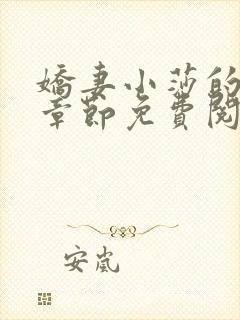 嬌妻小莎的
章節免費閱
安嵐